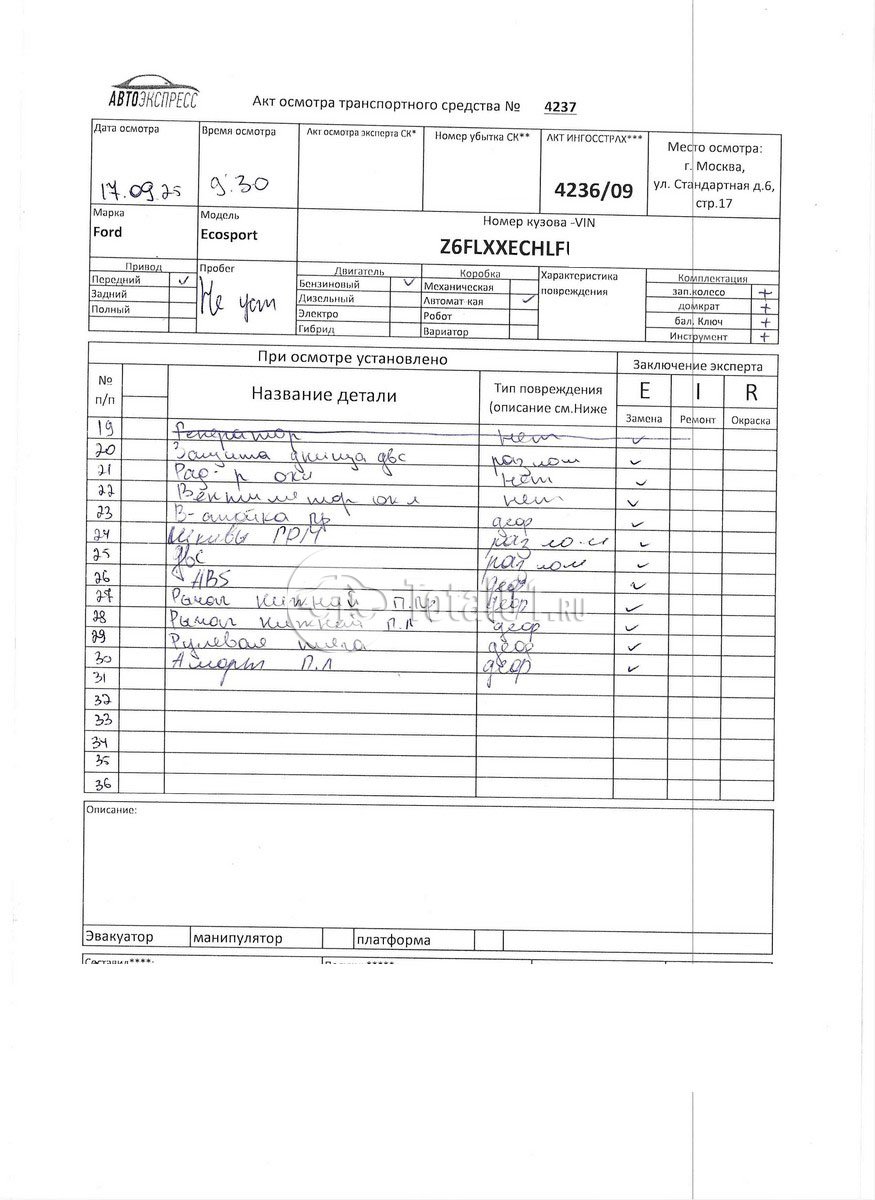 АВТОЭКСПРЕСС
Акт осмотра транспортного средства № 4237
Дата осмотра
17.09.25
Время осмотра
9:30
Акт осмотра эксперта СК*
Номер убытка СК**
АКТ ИНГОССТРАХ***
4236/09
Место осмотра:
г. Москва,
ул. Стандартная д.6,
стр.17
Марка
Ford
Модель
Ecosport
Номер кузова -VIN
Z6FLXXECHLF
Привод
Передний ✓
Задний
Полный
Пробег
Не уст
Двигатель
Бензиновый ✓
Дизельный
Электро
Гибрид
Коробка
Механическая
Автомат кая ✓
Робот
Вариатор
Характеристика
повреждения
Комплектация
зап.колесо +
домкрат +
бал. Ключ +
Инструмент +
При осмотре установлено
Заключение эксперта
№
п/п
Название детали
Тип повреждения
(описание см.Ниже
E I R
Замена Ремонт Окраска
19 Генератор нет ✓
20 Защита днища двс разлом ✓
21 Рад-р нет ✓
22 Вентилятор нет ✓
23 В- пр деф ✓
24 Шкивы ГРМ разлом ✓
25 двс разлом ✓
26 ABS деф ✓
27 Рычаг нижний п.пр деф ✓
28 Рычаг нижний п.л деф ✓
29 Рулевая тяга деф ✓
30 Аморт п.л деф ✓
31
32
33
34
35
36
Total01.RU
Описание:
Эвакуатор манипулятор платформа
Составил****: